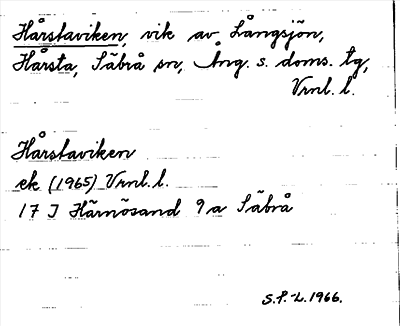 Hårstaviken, vik av Långsjön,
Hårsta, Säbrå sn, Ång. s. doms. tg,
Vrnl. l.
Hårstaviken
ek (1965) Vrnl. l.
17 J Härnösand 9a Säbrå
S.P.-L. 1966.